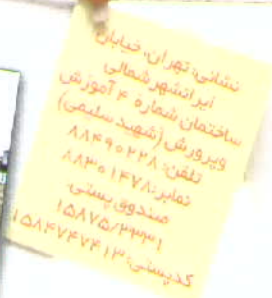 نشانی: تهران، خیابان
ایرانشهر شمالی
ساختمان شمارهٔ ۴ آموزش
وپرورش (شهید سلیمی)
تلفن: ۸۸۴۹۰۲۲۸
نمابر: ۸۸۳۰۱۴۷۸
صندوق پستی:
۱۵۸۷۵/۲۹۳۱
کدپستی: ۱۵۸۴۷۴۷۴۱۳